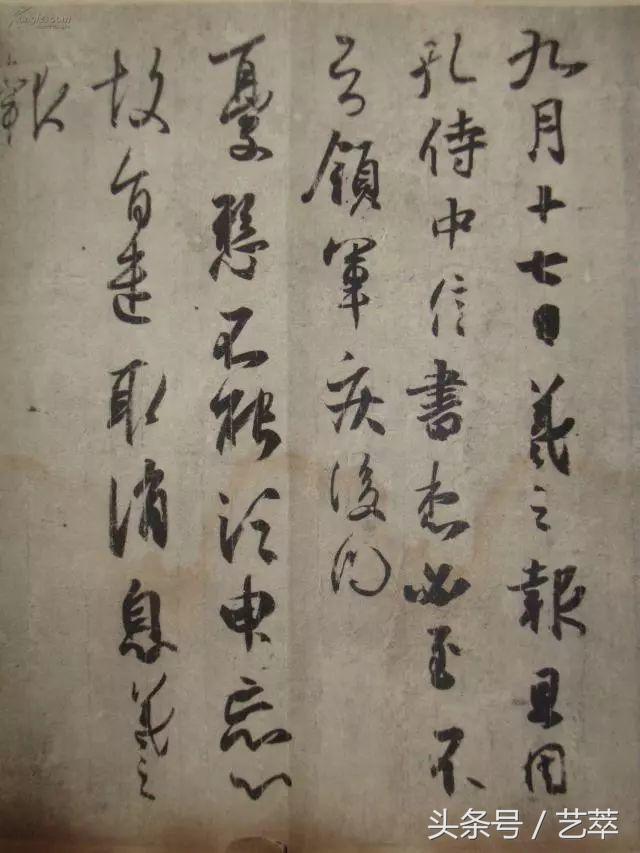 九月十七日羲之報且因
孔侍中信書想必至不
知領軍疾後問
憂懸不能須臾忘心
故旨遣取消息羲之
報
头条号 / 艺萃